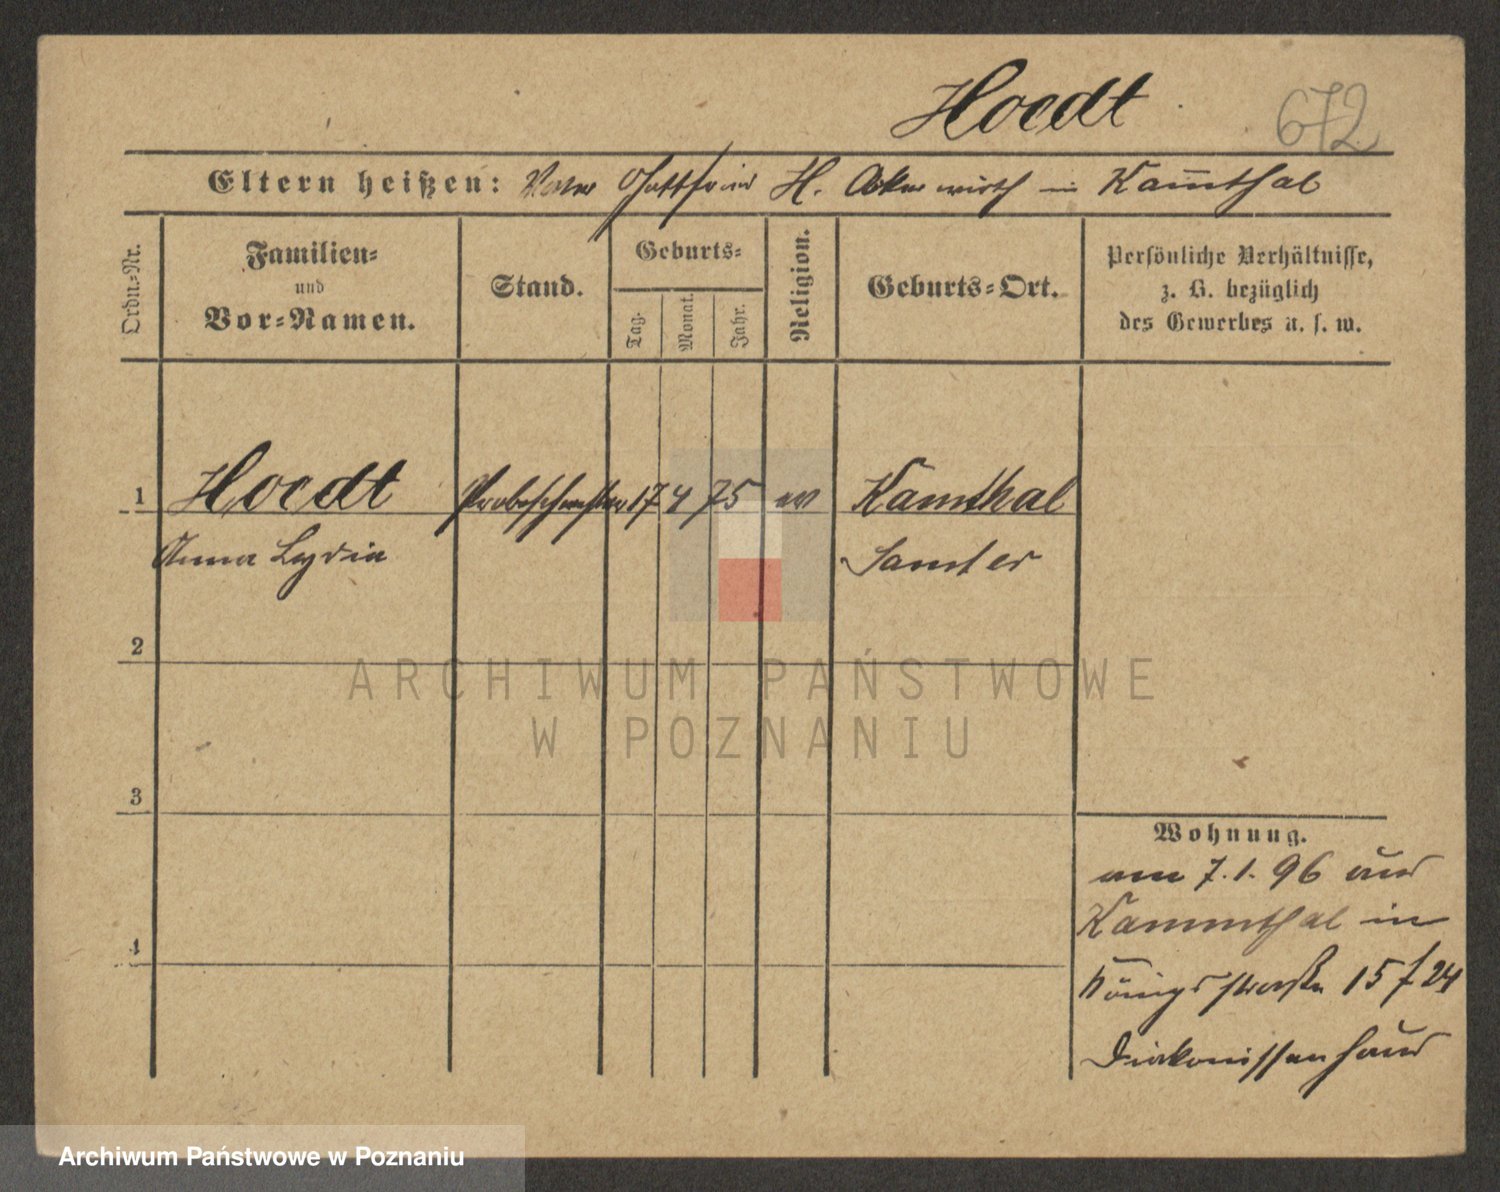 Hoedt 672
Eltern heißen: Vater Gottfried H. Ackerwirth in Kam̅thal
Ordn.-Nr.
Familien-
und
Vor-Namen.
Stand.
Geburts-
Tag.
Monat.
Jahr.
Religion.
Geburts-Ort.
Persönliche Verhältnisse,
z. B. bezüglich
des Gewerbes u. s. w.
1 Hoedt Probeschwester 17 4 75 ev Kamthal
Anna Lydia Samter
2
3
4
Wohnung.
am 7.1.96 aus
Kammthal in
Königsstraße 15 f 24
Diakonissenhaus
ARCHIWUM PAŃSTWOWE
W POZNANIU
Archiwum Państwowe w Poznaniu